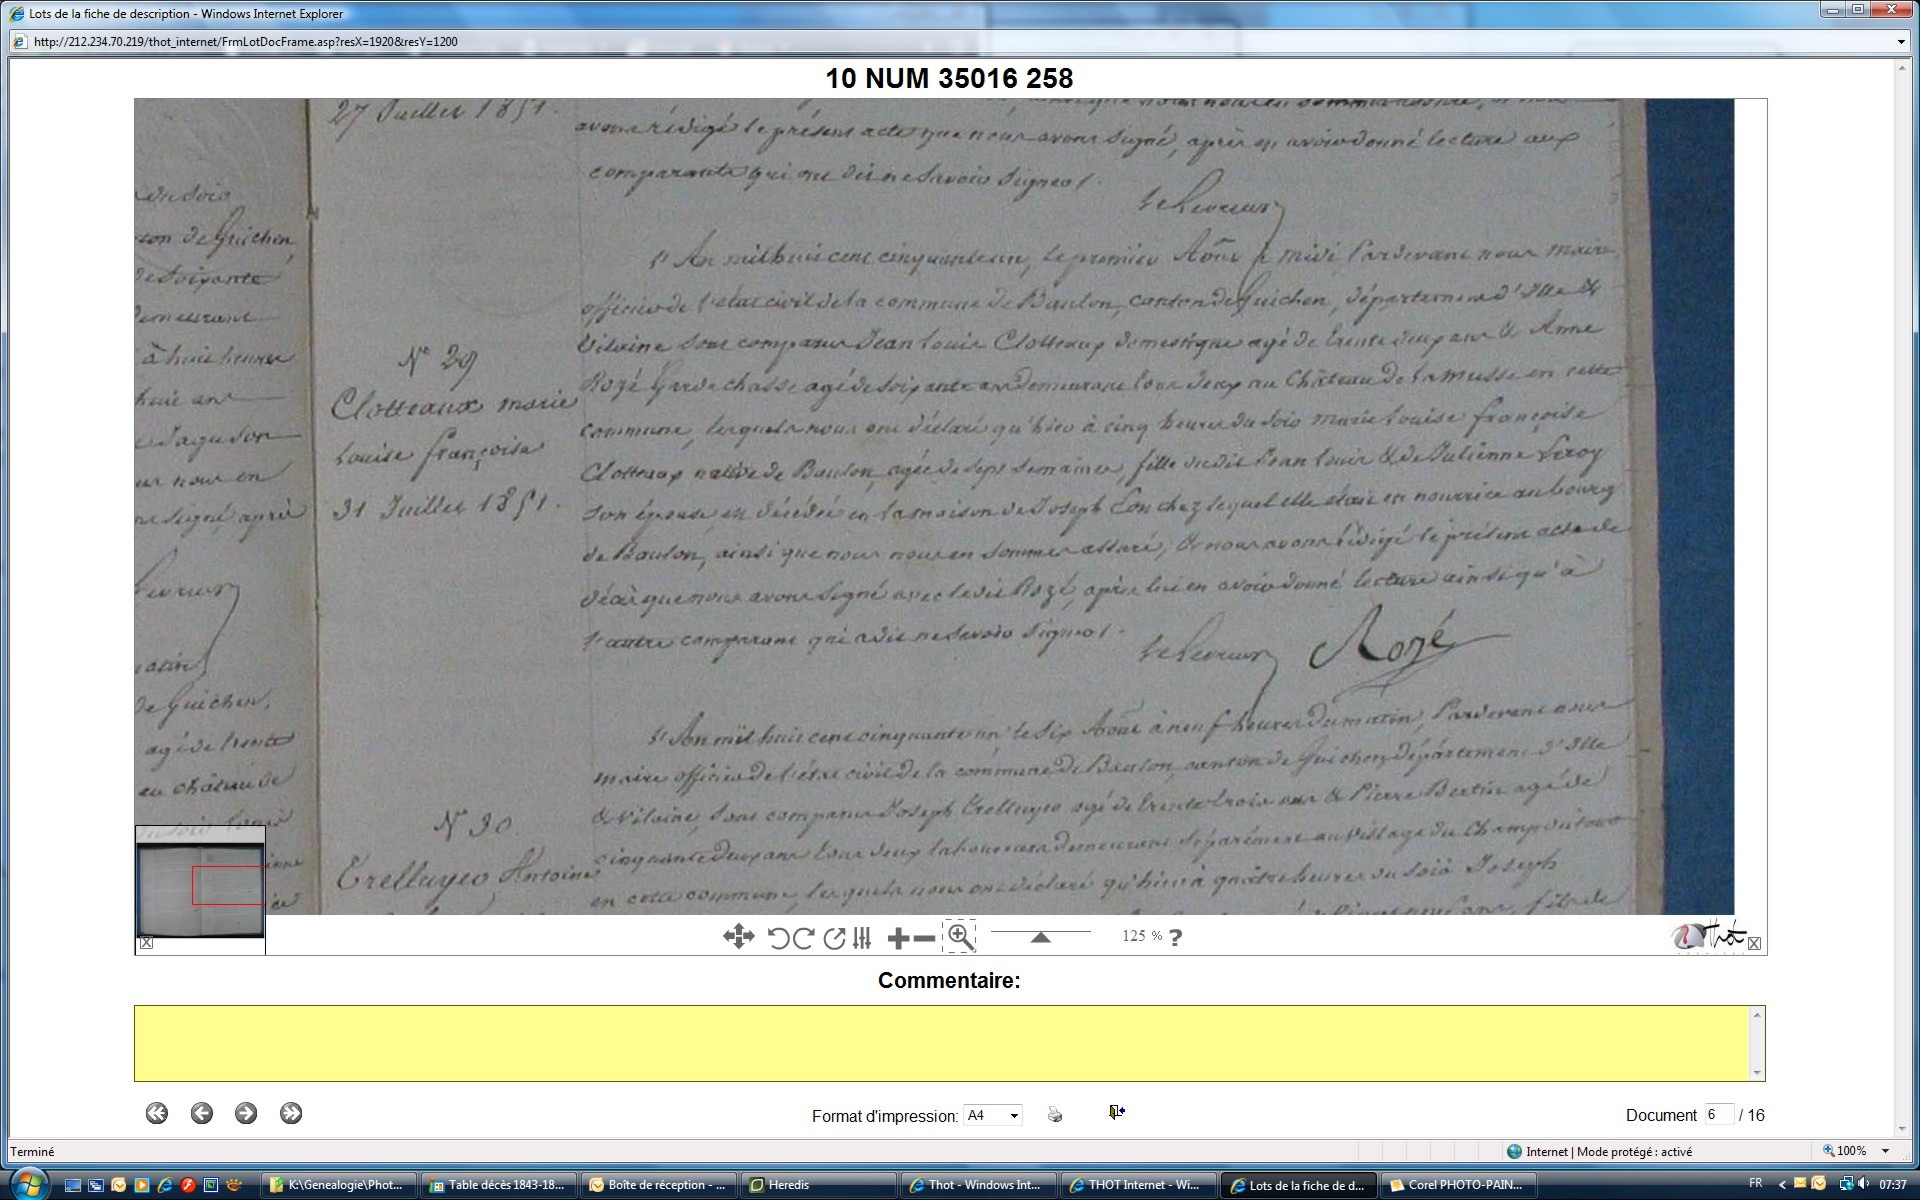 Lots de la fiche de description - Windows Internet Explorer
http://212.234.70.219/thot_internet/FrmLotDocFrame.asp?resX=1920&resY=1200
10 NUM 35016 258
27 Juillet 1851.
avons rédigé le présent acte que nous avons signé, après en avoir donné lecture aux
comparants qui ont dit ne savoir signer.
du soir
ton de Guichen,
de soixante
demeurant
à huit heures
huit ans
nous en
signé, après
de Guichen,
agé de trente
au château de
L'An mil huit cent cinquante un, le premier Août à midi, Pardevant nous maire
officier de l'état civil de la commune de Baulon, canton de Guichen, département d'Ille &
Vilaine sont comparus Jean Louis Clotteaux domestique agé de trente deux ans & Anne
Rozé Garde chasse agé de soixante ans demeurant tous deux au Château de la Musse en cette
commune, lesquels nous ont déclaré qu'hier à cinq heures du soir Marie Louise françoise
Clotteaux native de Baulon, agée de sept semaines, fille dudit Jean Louis & de Julienne Leroy
son épouse, est décédée en la maison de Joseph chez lequel elle était en nourrice au bourg
de Baulon, ainsi que nous nous en sommes assuré, & nous avons rédigé le présent acte de
décès que nous avons signé avec ledit Rozé, après lui en avoir donné lecture ainsi qu'à
l'autre comparant qui a dit ne savoir signer.
Rozé
N° 29
Clotteaux marie
Louise françoise
31 Juillet 1851.
L'An mil huit cent cinquante un le six Août à neuf heures du matin, Pardevant nous
maire officier de l'état civil de la commune de Baulon, canton de Guichen département d'Ille
& Vilaine, sont comparus Joseph Trelluyer agé de trente trois ans & Pierre Bertin agé de
cinquante deux ans tous deux laboureurs demeurant séparément au village du Champ
en cette commune, lesquels nous ont déclaré qu'hier à quatre heures du soir Joseph
N° 30
Trelluyer Antoine
125 %
?
Thot
Commentaire:
Format d'impression: A4
Document 6 / 16
Terminé
Internet | Mode protégé : activé
100%
K:\Genealogie\Phot...
Table décès 1843-18...
Boîte de réception - ...
Heredis
Thot - Windows Int...
THOT Internet - Wi...
Lots de la fiche de d...
Corel PHOTO-PAIN...
FR
07:37